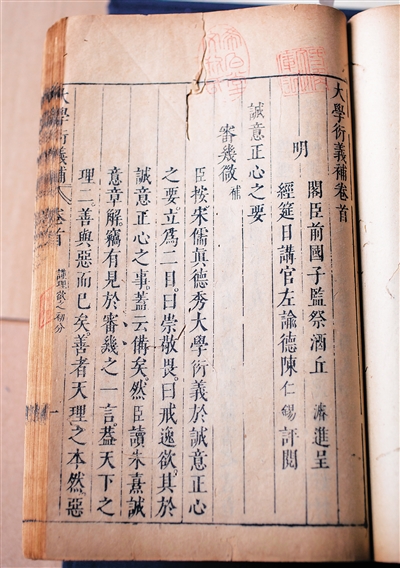 大學衍義補卷首
明
閣臣前國子監祭酒丘 濬進呈
經筵日講官左諭德陳仁錫評閱
誠意正心之要
審幾微 補
臣按宋儒眞德秀大學衍義於誠意正心
之要立爲二目。曰崇敬畏。曰戒逸欲。其於
誠意正心之事。葢云備矣。然臣讀朱熹誠
意章解竊有見於審幾之一言。葢天下之
理二。善與惡而已矣。善者天理之本然。惡
謹理欲之初分
大學衍義補
卷首
一